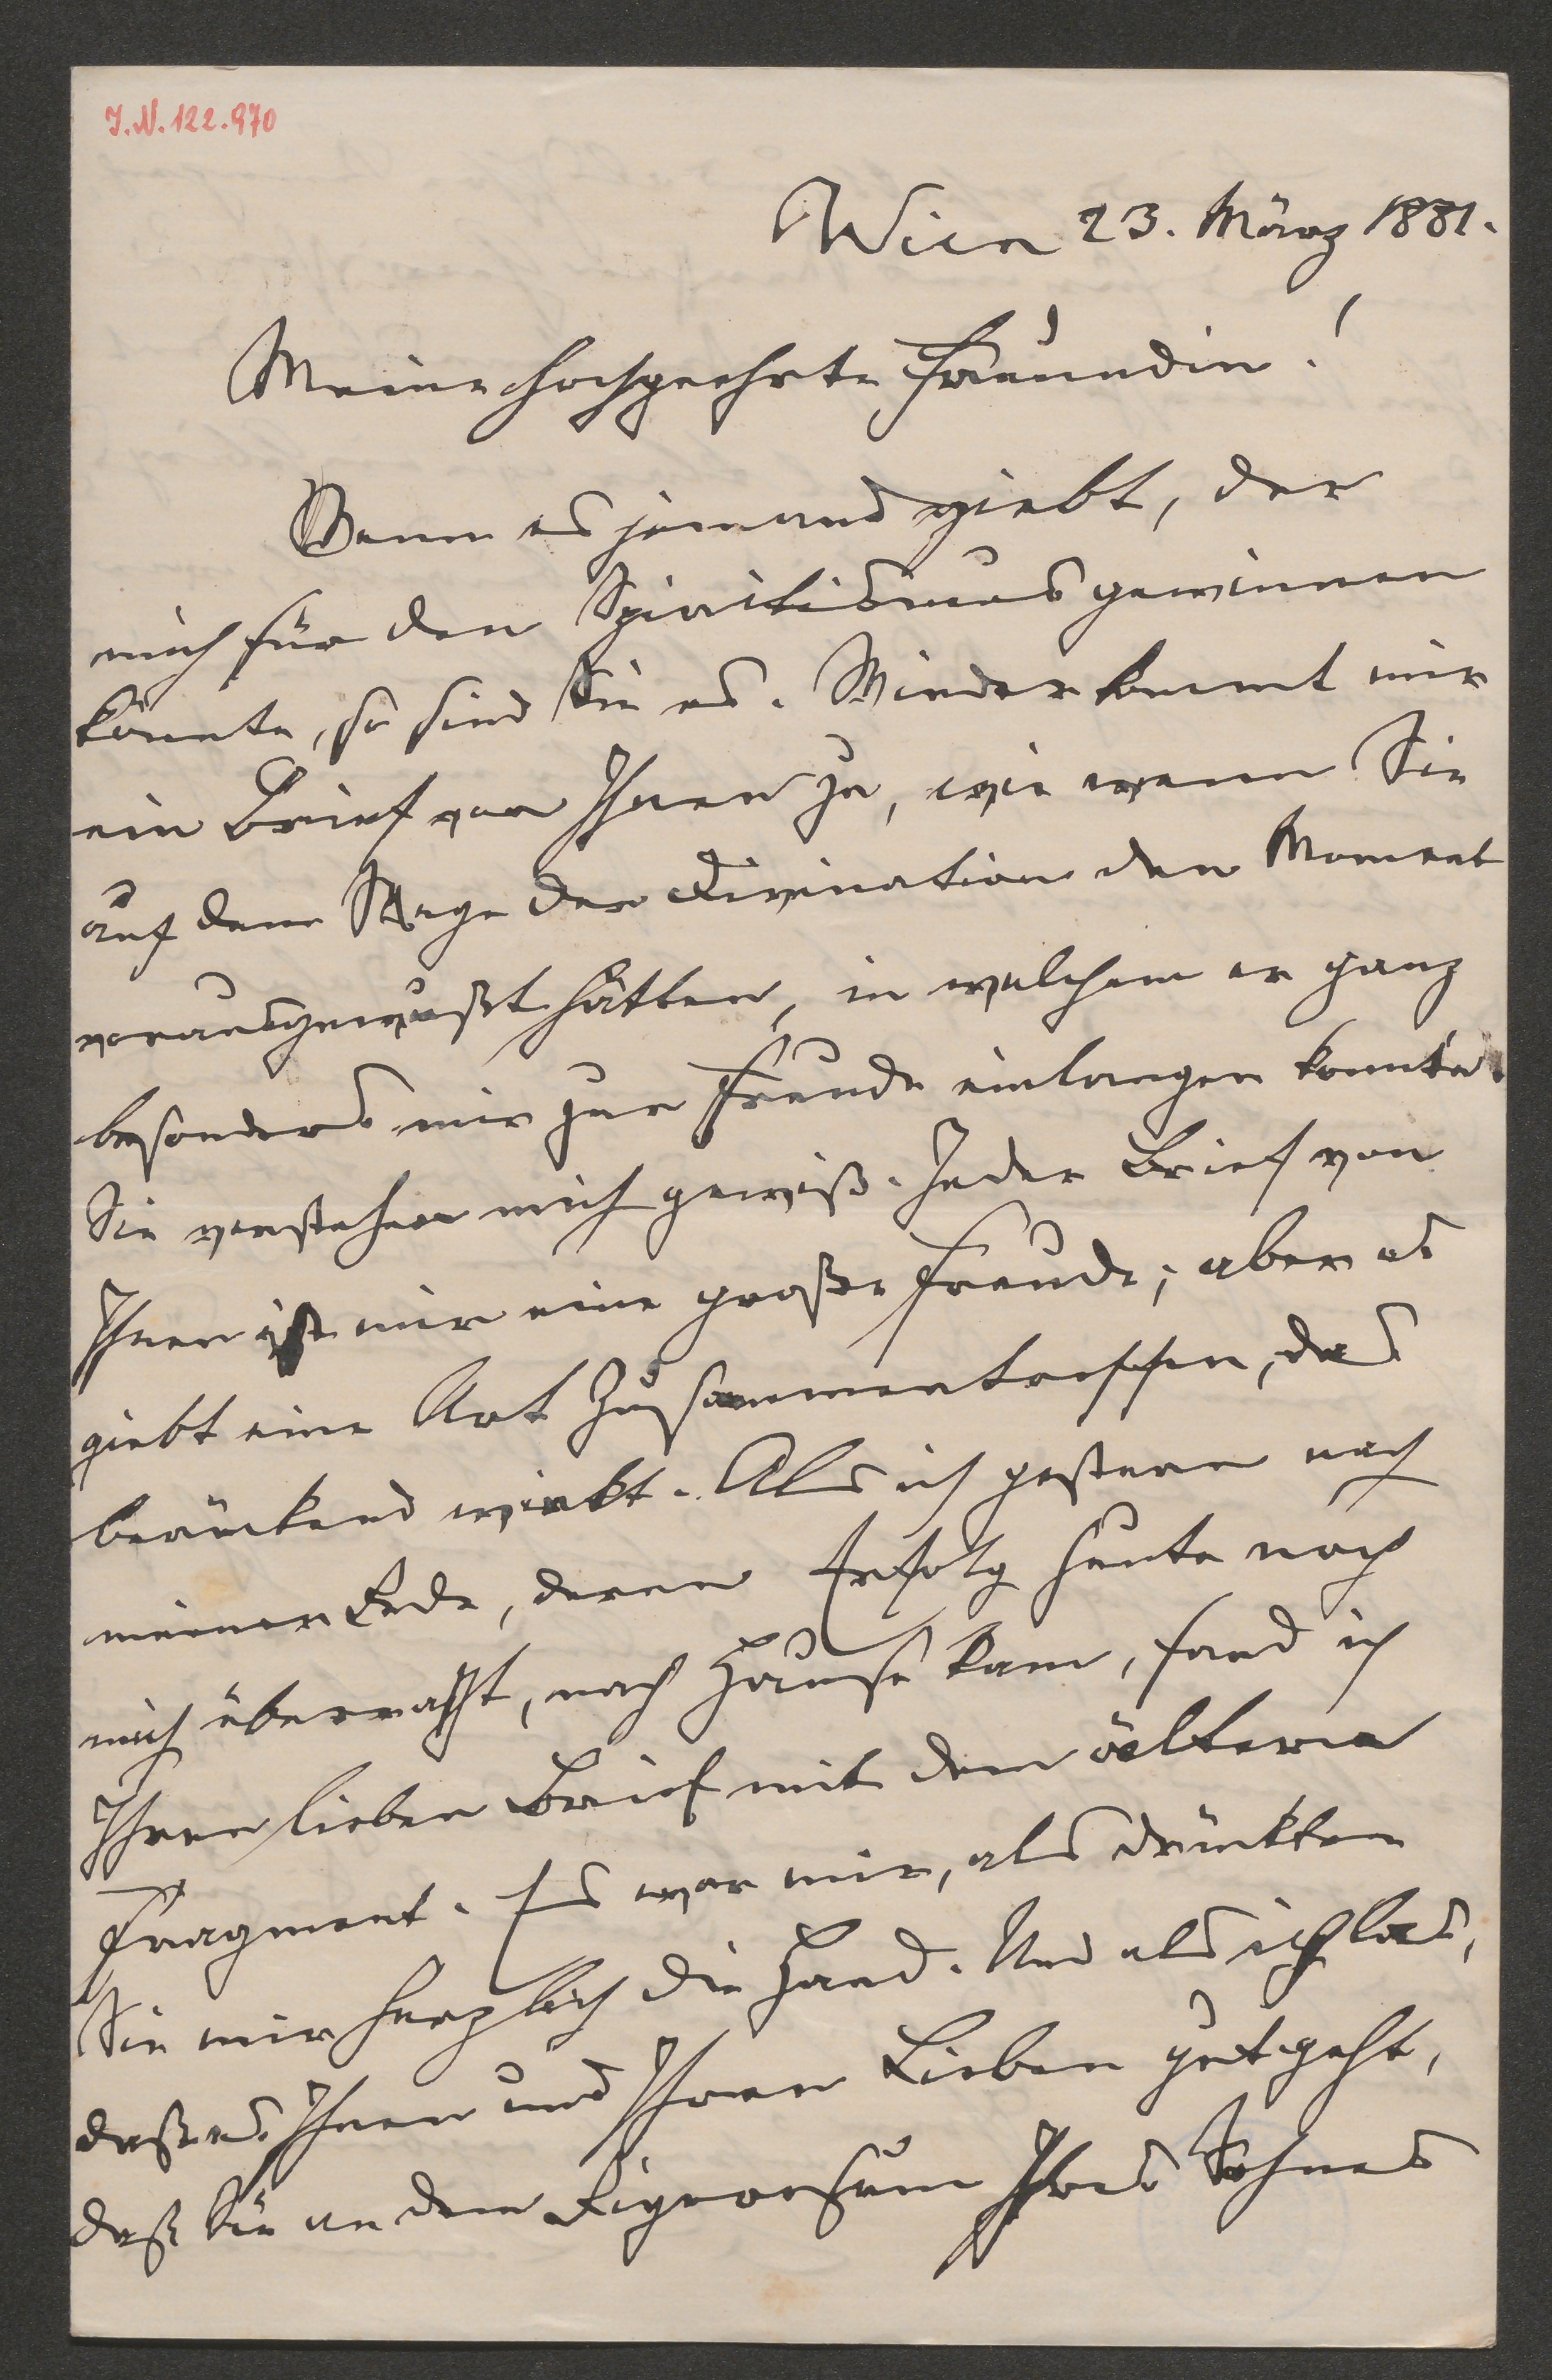 J.N. 122.970
Wien 23. März 1881.
Meine hochgeehrte Freundin!
Wenn es jemand giebt, der
mich für den Spiritismus gewinnen
könnte, so sind Sie es. Wieder kommt mir
ein Brief von Ihnen zu, wie wenn Sie
auf dem Wege der Divination den Moment
vorausgewußt hätten, in welchem er ganz
besonders mir zur Freude einlangen konnte.
Sie verstehen mich gewiß. Jeder Brief von
Ihnen ist mir eine große Freude; aber es
giebt eine Art Zusammentreffen, das
berückend wirkt. Als ich gestern nach
meiner Rede, deren Erfolg heute noch
mich überrascht, nach Hause kam, fand ich
Ihren lieben Brief mit dem älteren
Fragment. Es war mir, als drückten
Sie mir herzlich die Hand. Und als ich las,
daß es Ihnen und Ihren Lieben gut geht,
daß Sie an dem Rigorosum Ihres Sohnes